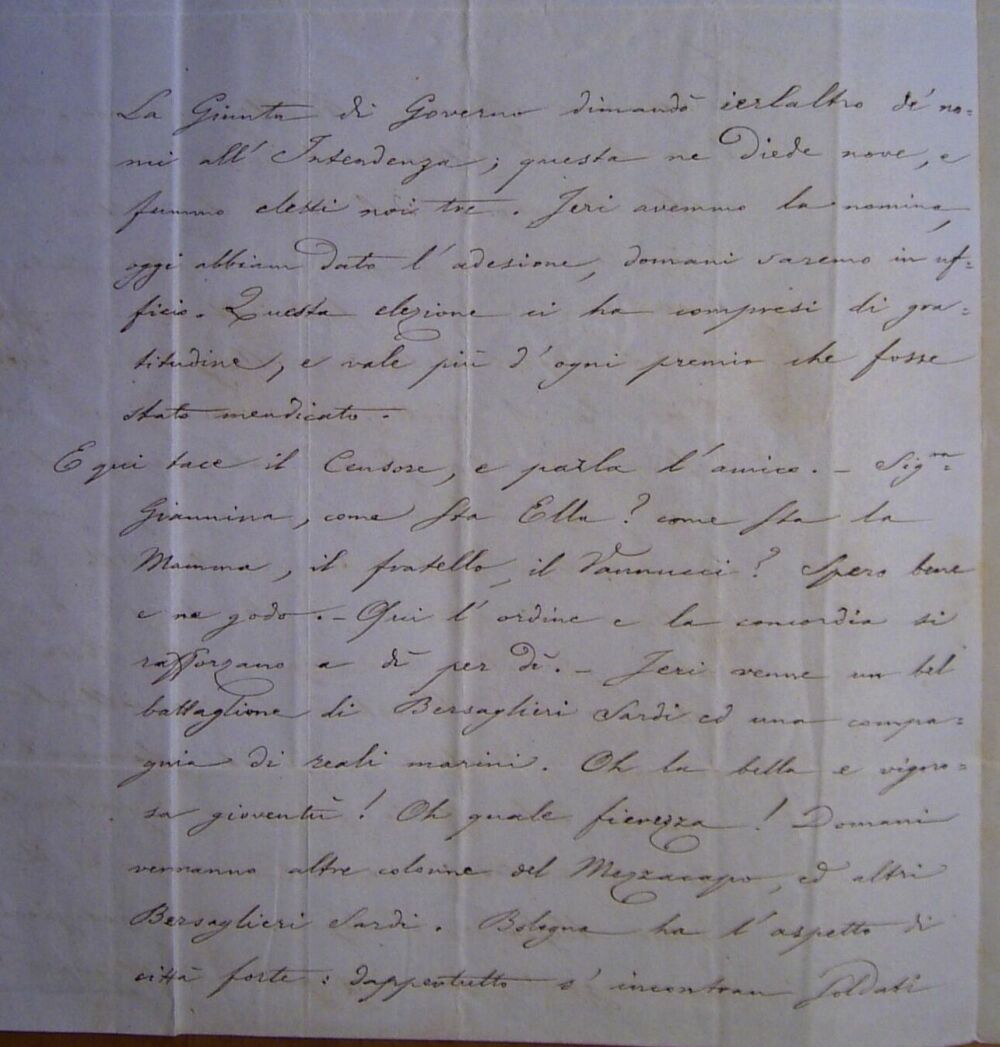 La Giunta di Governo dimandò ierlaltro de' no=
mi all' Intendenza; questa ne diede nove, e
fummo eletti noi tre. Jeri avemmo la nomina,
oggi abbiam dato l'adesione, domani saremo in uf=
ficio. Questa elezione ci ha compresi di gra=
titudine, e vale più d'ogni premio che fosse
stato mendicato.
E qui tace il Censore, e parla l'amico. - Sig.ra
Giannina, come sta Ella? come sta la
Mamma, il fratello, il Vannucci? Spero bene
e ne godo. - Qui l'ordine e la concordia si
rafforzano a dì per dì. - Jeri venne un bel
battaglione di Bersaglieri Sardi ed una compa=
gnia di reali marini. Oh la bella e vigoro=
sa gioventù! Oh quale fierezza! Domani
verranno altre colonne del Mezzacapo, ed altri
Bersaglieri Sardi. Bologna ha l'aspetto di
città forte: dappertutto s'incontran soldati